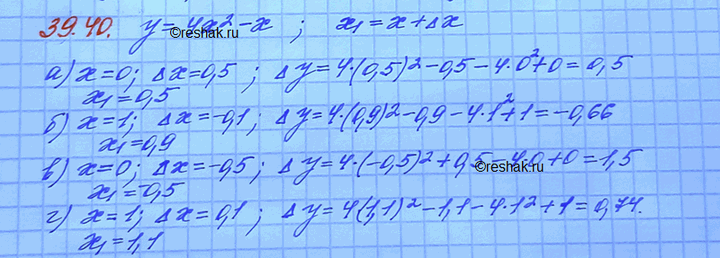 39.40. y=4x²-x ; x₁=x+Δx
©reshak.ru
а) x=0; Δx=0,5 ; Δy=4·(0,5)²-0,5-4·0²+0=0,5
x₁=0,5
б) x=1; Δx=-0,1; Δy=4·(0,9)²-0,9-4·1²+1=-0,66
x₁=0,9
в) x=0; Δx=-0,5; Δy=4·(-0,5)²+0,5-4·0+0=1,5
©reshak.ru
x₁=-0,5
г) x=1; Δx=0,1 ; Δy=4(1,1)²-1,1-4·1²+1=0,74.
x₁=1,1